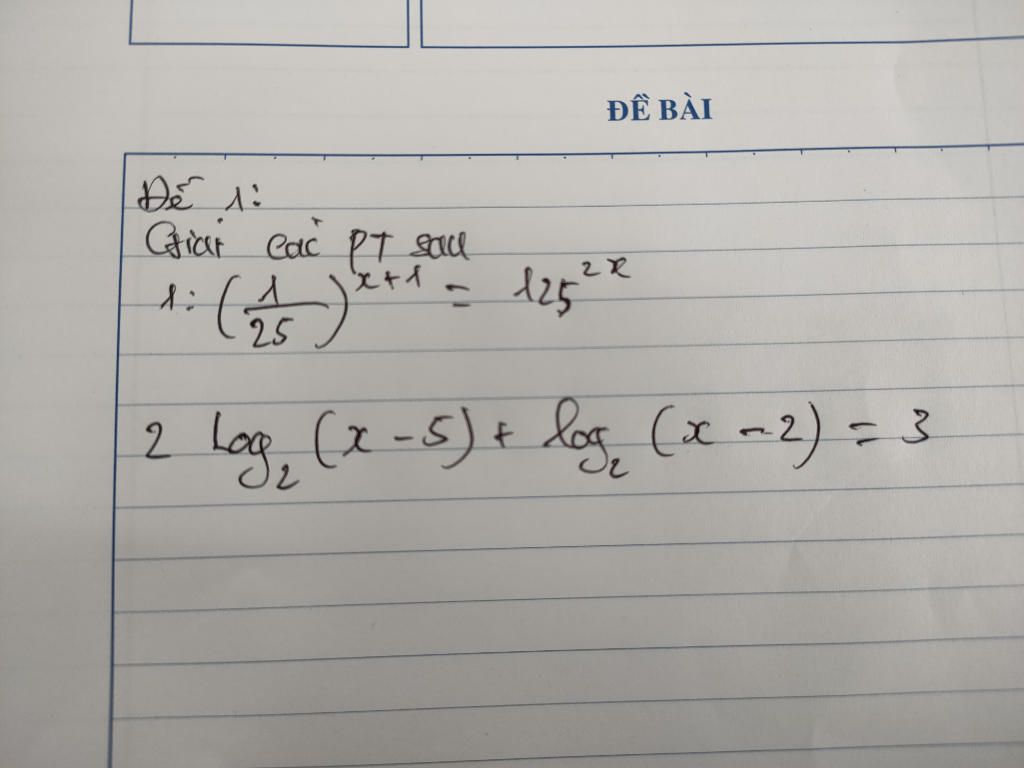 ĐỀ BÀI
Đề 1:
Giải các PT sau
1: (1/25)^(x+1) = 125^(2x)
2 Log₂ (x - 5) + log₂ (x - 2) = 3